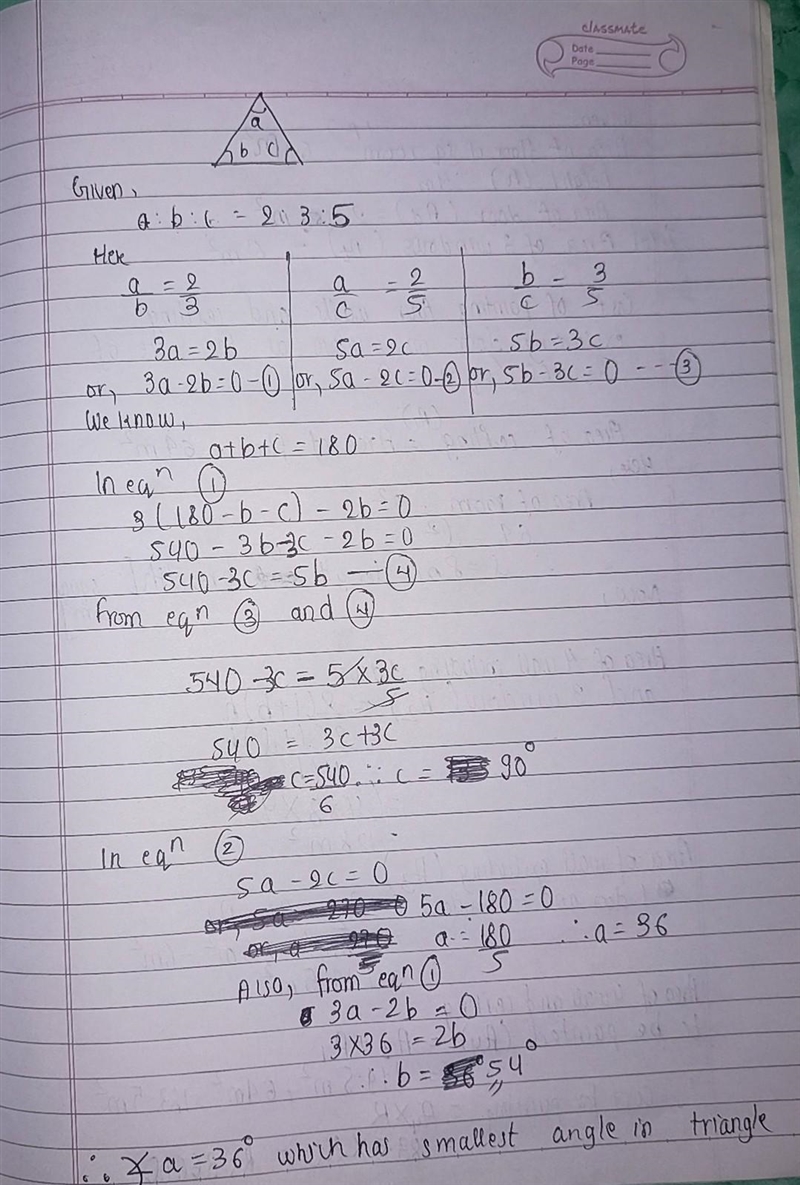 CLASSMATE
Date
Page
a
b c
Given,
a : b : c = 2 : 3 : 5
Here
a/b = 2/3 | a/c = 2/5 | b/c = 3/5
3a = 2b | 5a = 2c | 5b = 3c
or, 3a - 2b = 0 - ① | or, 5a - 2c = 0 - ② | or, 5b - 3c = 0 --- ③
We know,
a+b+c = 180
In eqⁿ ①
3(180 - b - c) - 2b = 0
540 - 3b - 3c - 2b = 0
540 - 3c = 5b — ④
from eqⁿ ③ and ④
540 - 3c = 5 × 3c/5
540 = 3c + 3c
c = 540/6 ∴ c = 90°
In eqⁿ ②
5a - 2c = 0
5a - 180 = 0
a = 180/5 ∴ a = 36
Also, from eqⁿ ①
3a - 2b = 0
3 × 36 = 2b
∴ b = 54°
∴ ∠ a = 36° which has smallest angle in triangle